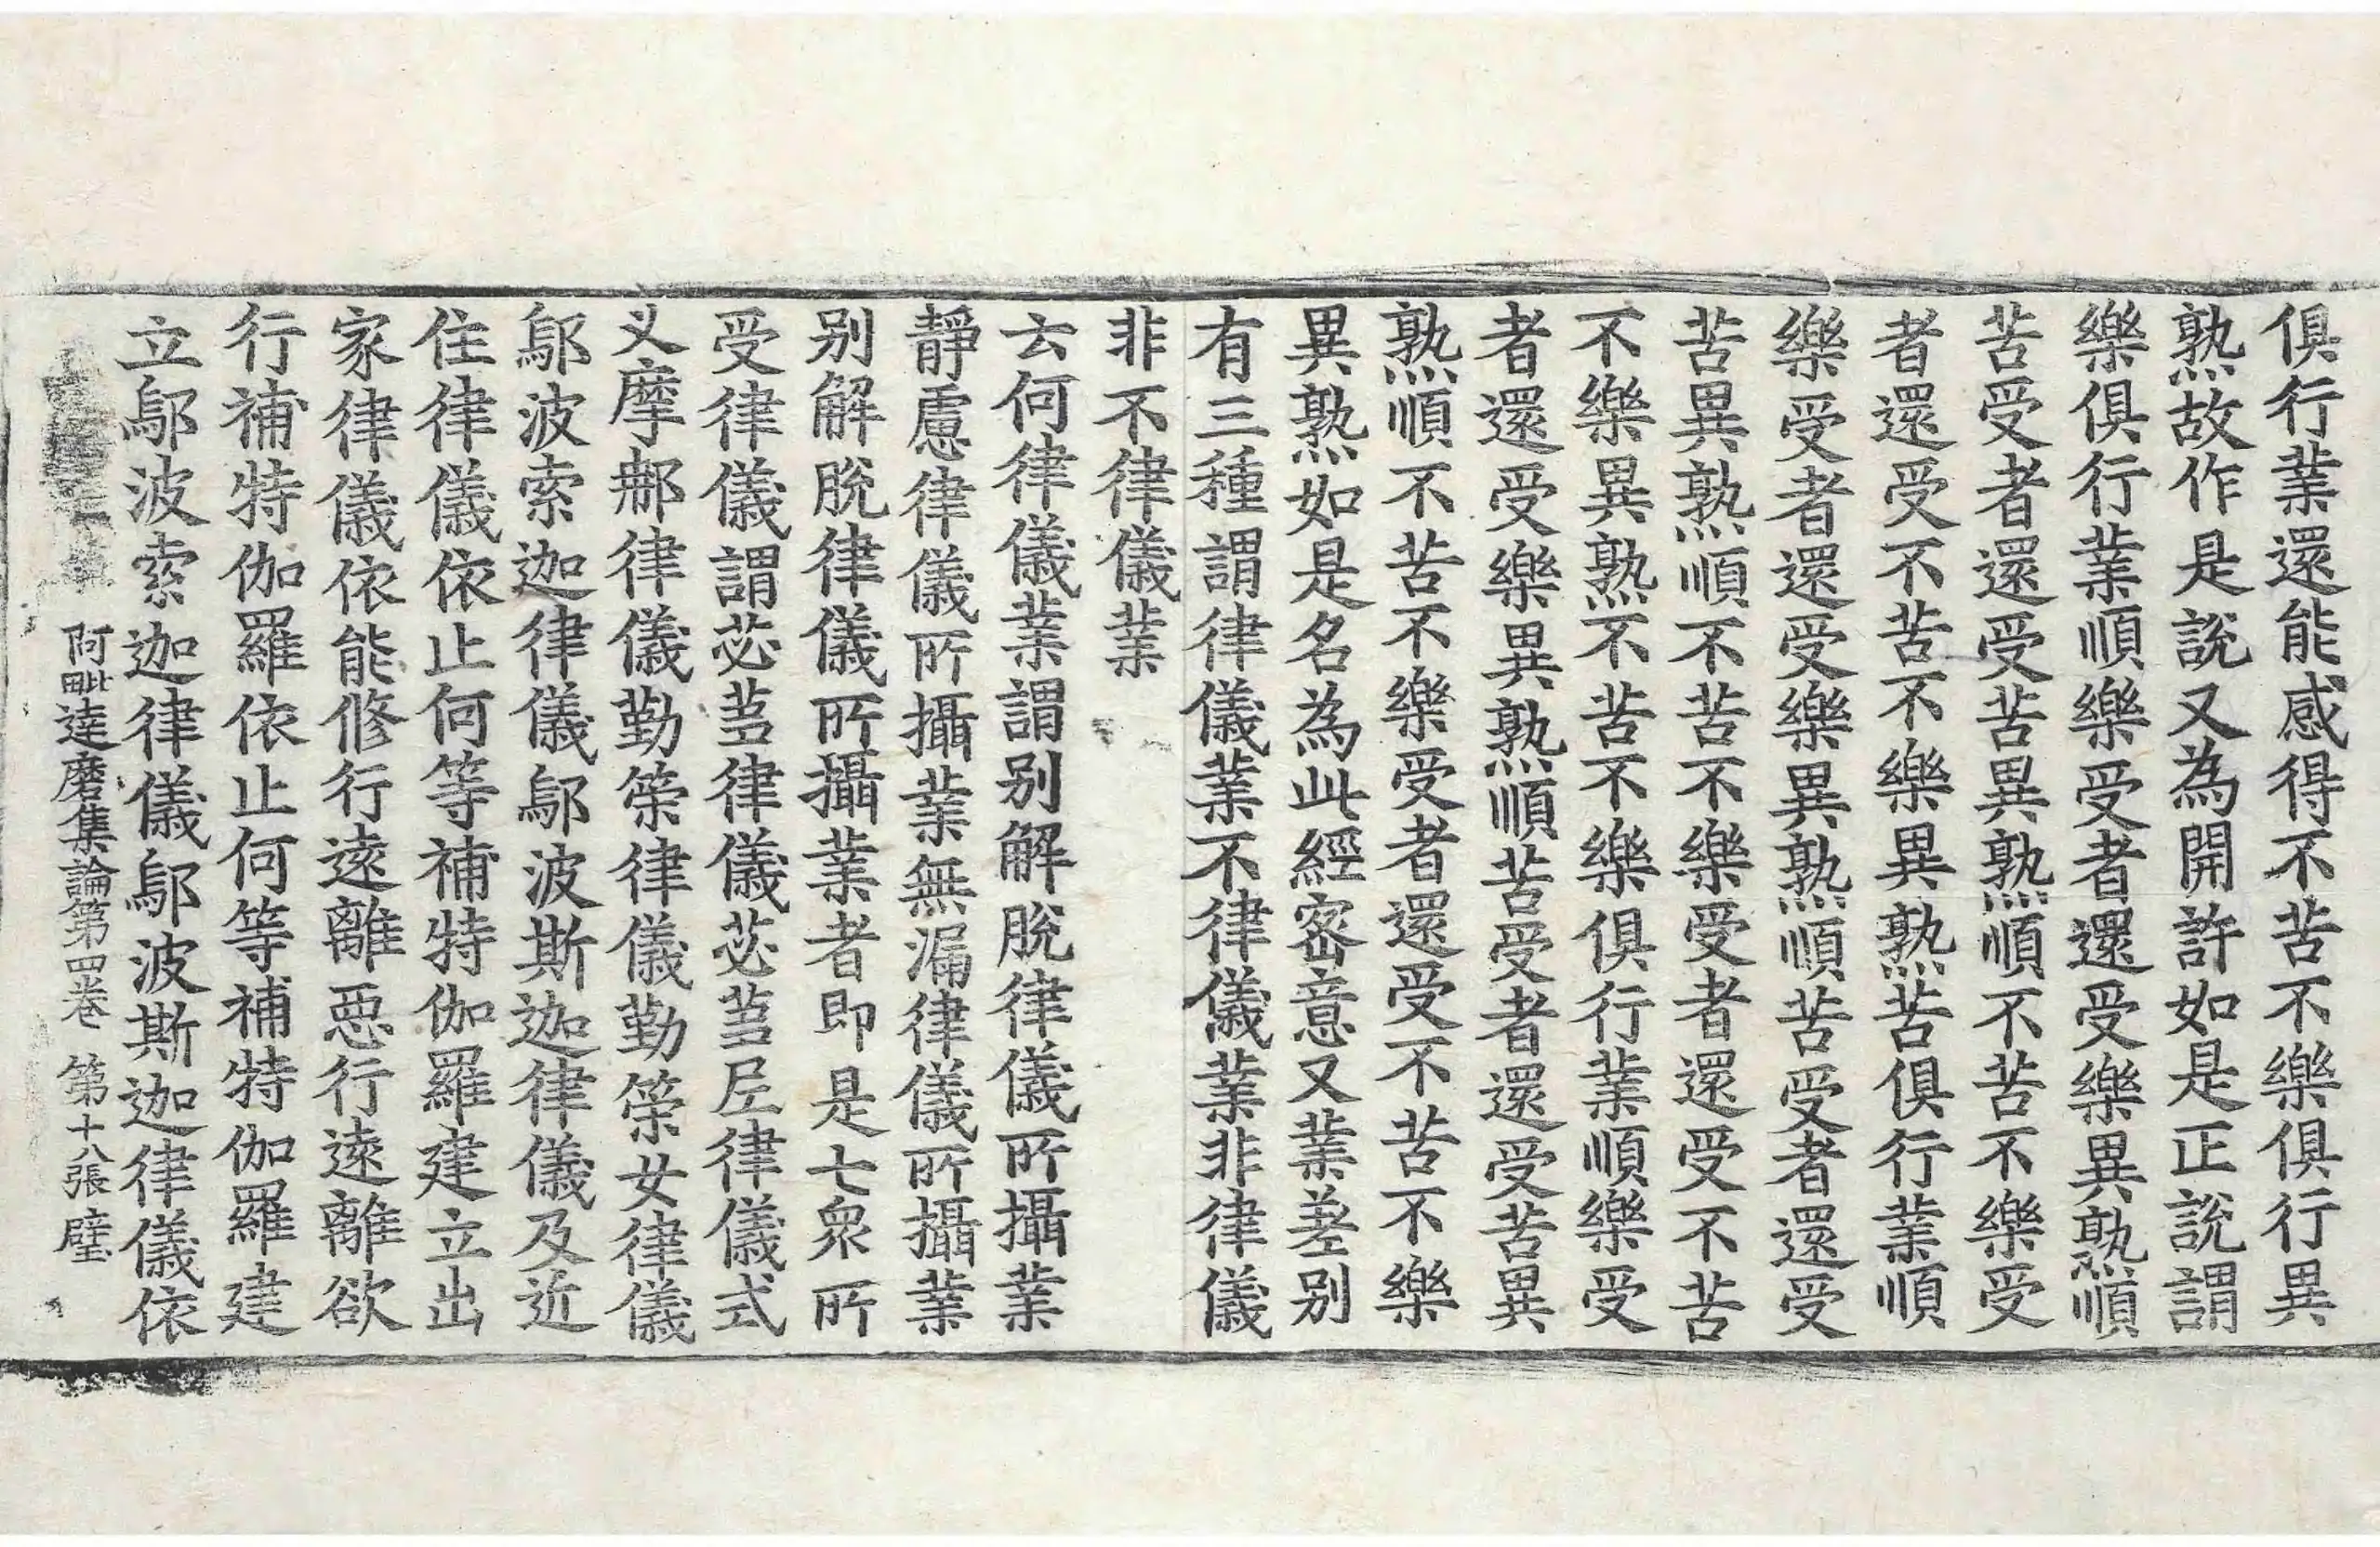 俱行業還能感得不苦不樂俱行異
熟故作是說又為開許如是正說謂
樂俱行業順樂受者還受樂異熟順
苦受者還受苦異熟順不苦不樂受
者還受不苦不樂異熟苦俱行業順
樂受者還受樂異熟順苦受者還受
苦異熟順不苦不樂受者還受不苦
不樂異熟不苦不樂俱行業順樂受
者還受樂異熟順苦受者還受苦異
熟順不苦不樂受者還受不苦不樂
異熟如是名為此經密意又業差別
有三種謂律儀業不律儀業非律儀
非不律儀業
云何律儀業謂別解脫律儀所攝業
靜慮律儀所攝業無漏律儀所攝業
別解脫律儀所攝業者即是七衆所
受律儀謂苾蒭律儀苾蒭尼律儀式
叉摩那律儀勤策律儀勤策女律儀
鄔波索迦律儀鄔波斯迦律儀及近
住律儀依止何等補特伽羅建立出
家律儀依能修行遠離惡行遠離欲
行補特伽羅依止何等補特伽羅建
立鄔波索迦律儀鄔波斯迦律儀依
阿毗達磨集論第四卷 第十八張 璧